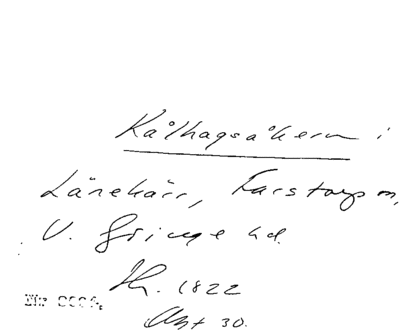 Kålhagsåkern i
Länekärr, Farstorps sn,
V. Göinge hd.
1822
Akt 30.